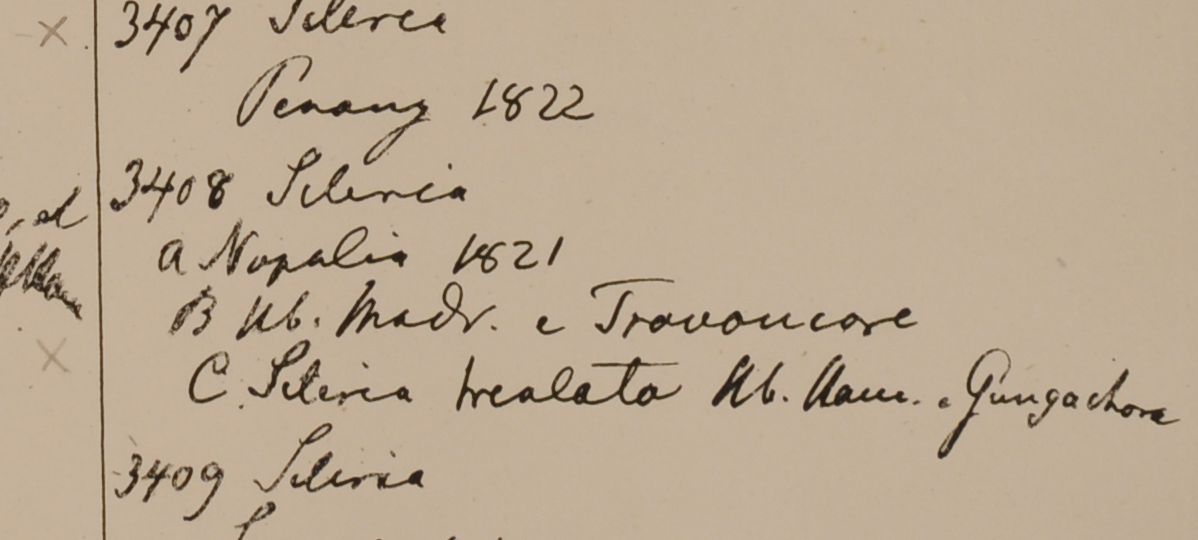 3407 Scleria
Penang 1822
3408 Scleria
et
a Nopalia 1821
B Hb. Madr. e Travoncore
C. Scleria trealata Hb. Ham. e Gungachora
3409 Scleria